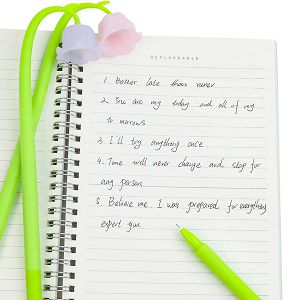 REPLACEABLE
1. Better late than never
2. You are my today and all of my
to morrows
3. I'll try anything once
4. Time will never change and stop for
any person
5. Believe me I was prepared for everything
expert you.